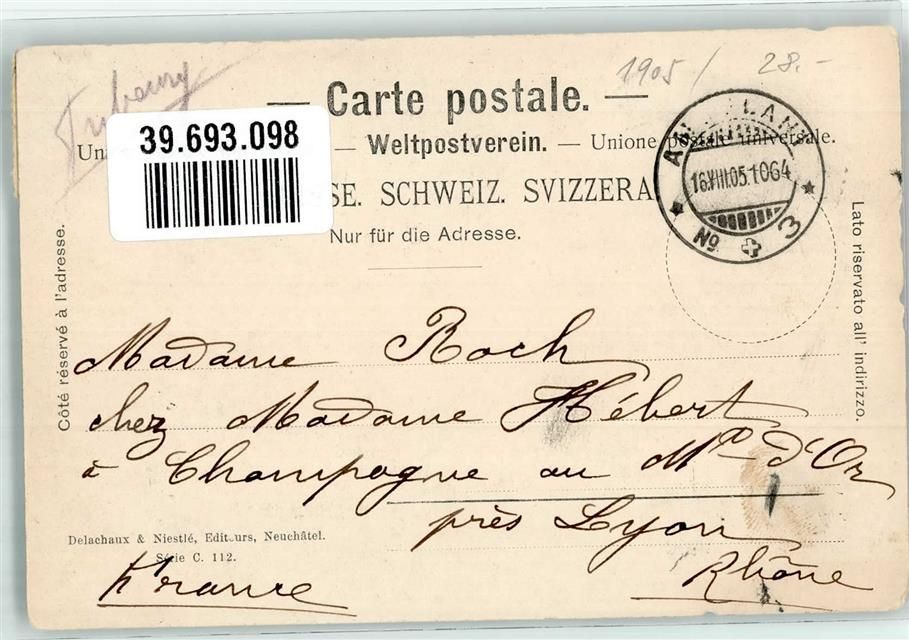 Fribourg
1905 / 28.-
— Carte postale. —
39.693.098
— Weltpostverein. — Unione postale universale.
SE. SCHWEIZ. SVIZZERA
Nur für die Adresse.
16.VIII.05.10
No 3
Côté réservé à l'adresse.
Lato riservato all' indirizzo.
Madame Roch
chez Madame Hébert
à Champagne au Mt d'Or
près Lyon
Rhône
France
Delachaux & Niestlé, Editeurs, Neuchâtel.
Série C. 112.